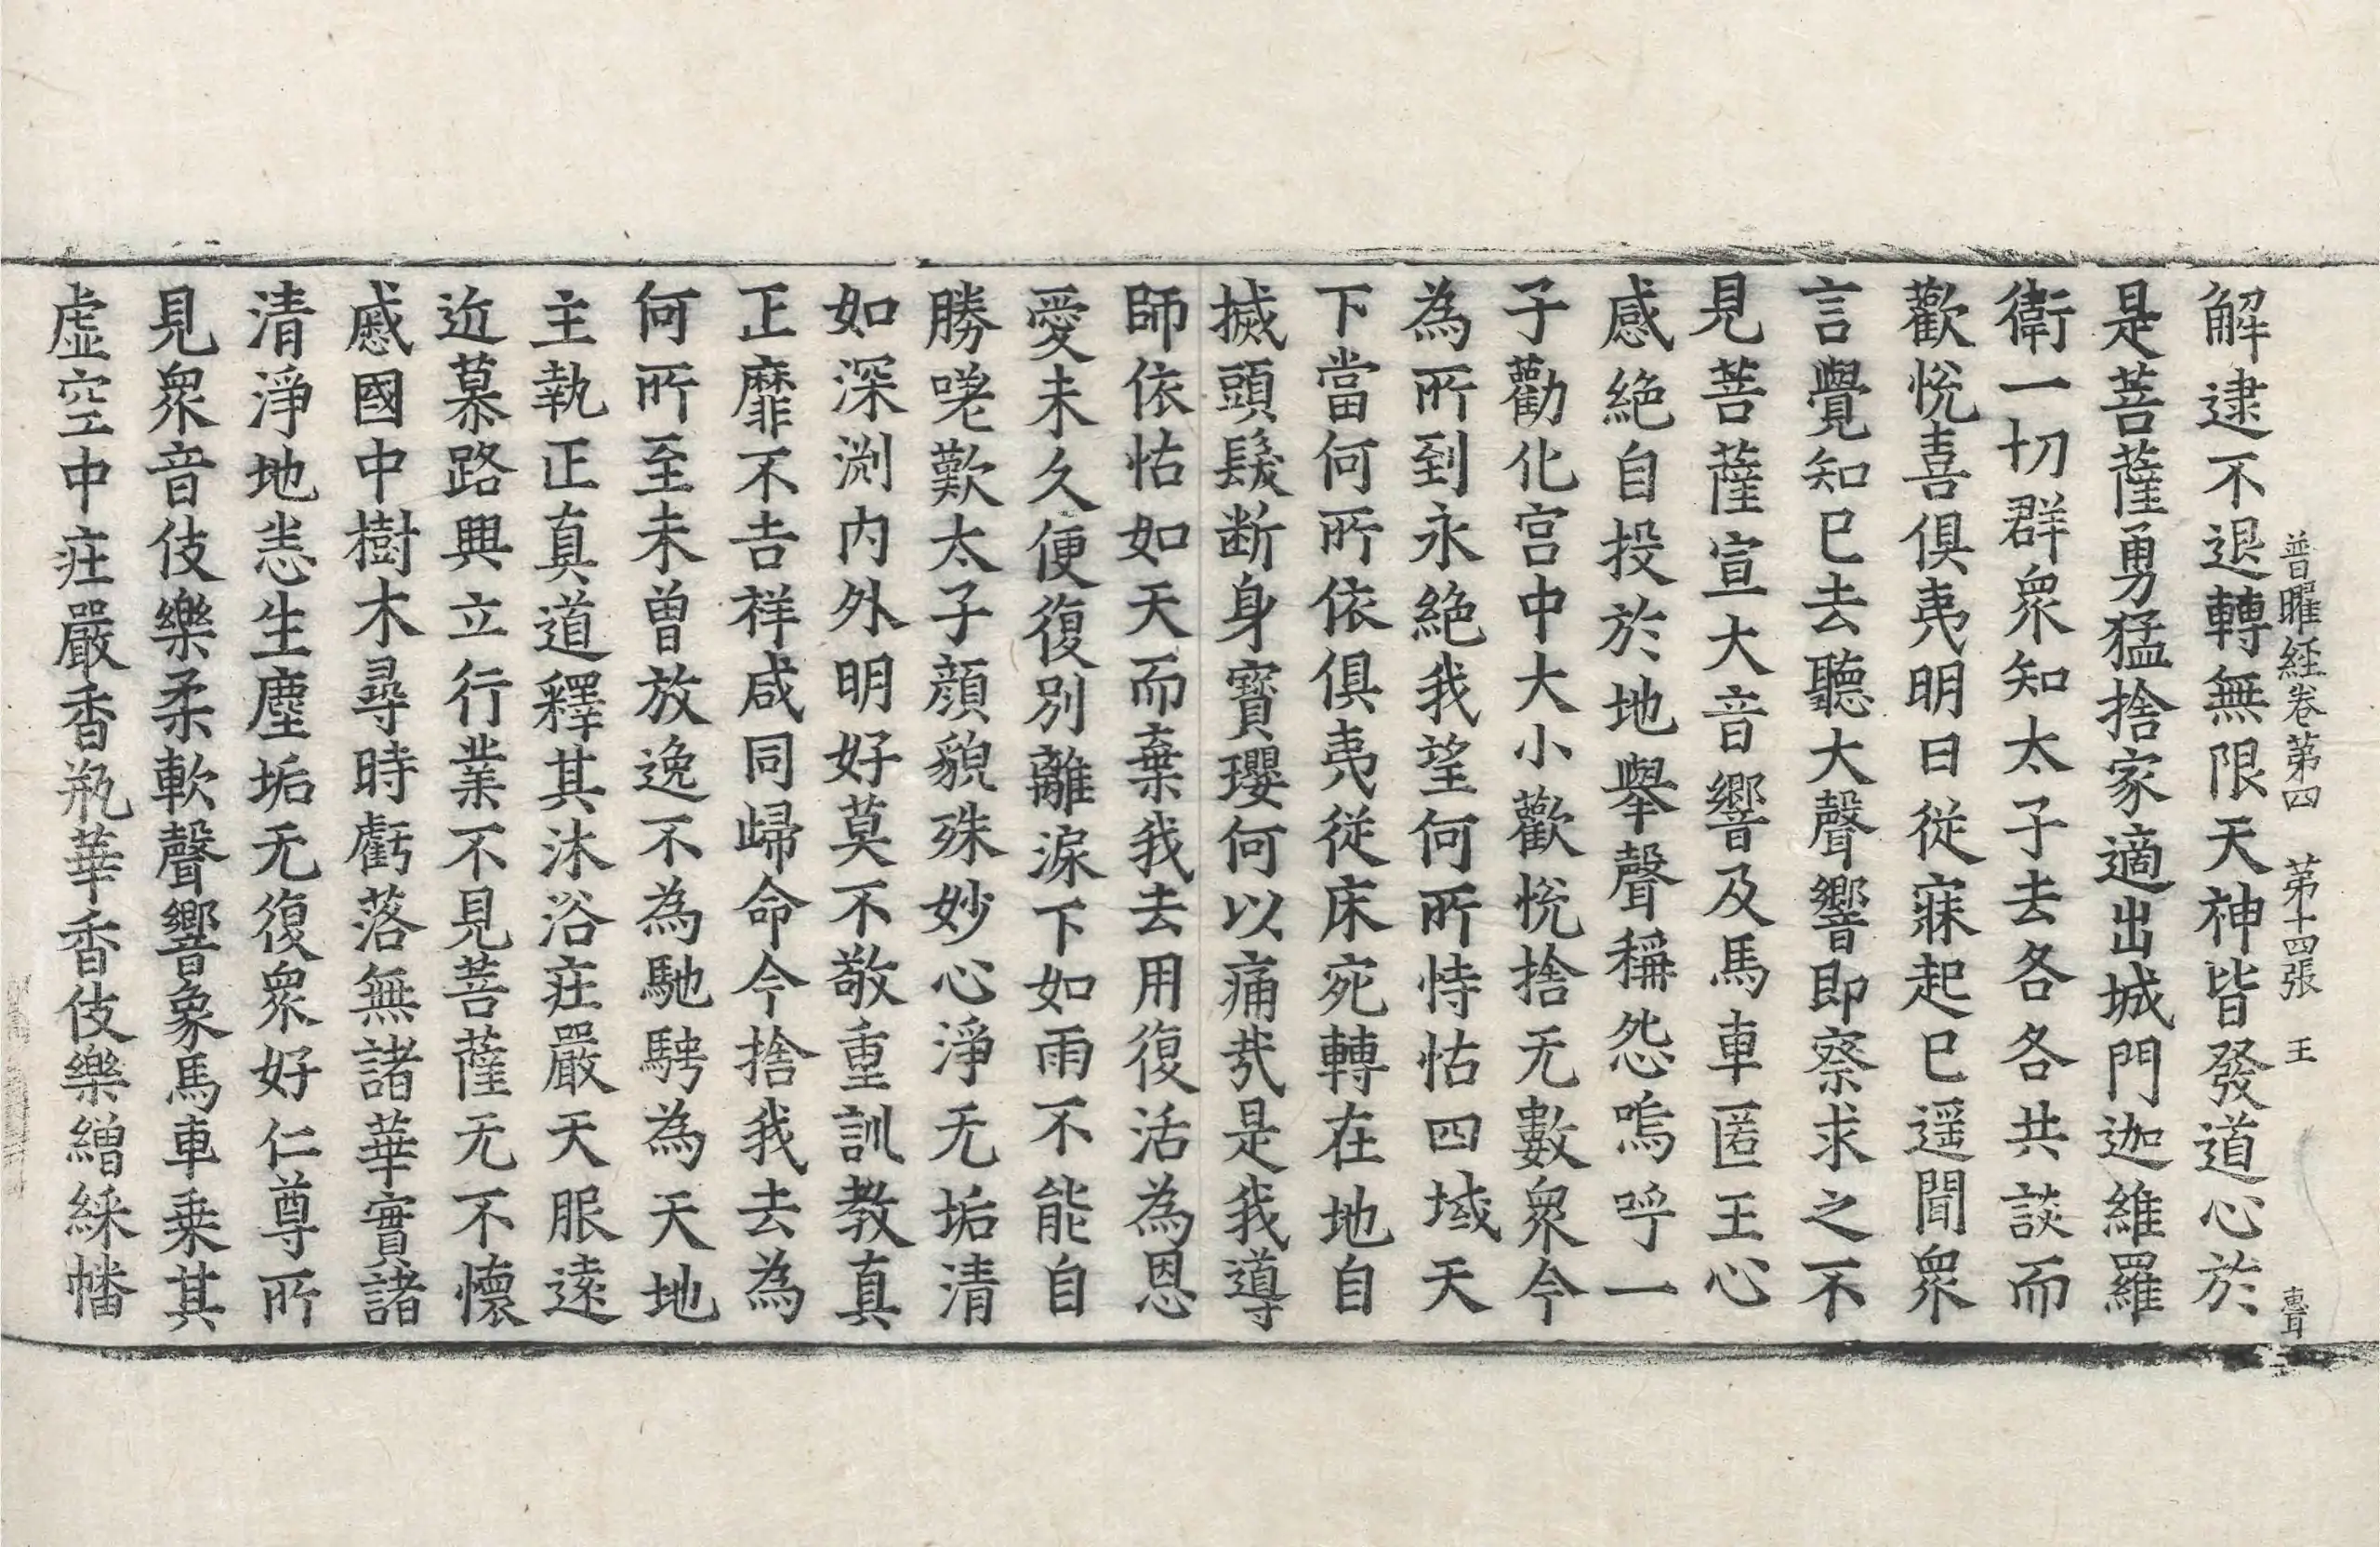 普曜経卷第四　第十四張　王
解逮不退轉無限天神皆發道心於
是菩薩勇猛捨家適出城門迦維羅
衛一切群衆知太子去各各共談而
歡悅喜俱夷明日從寐起已遥聞衆
言覺知已去聽大聲響即察求之不
見菩薩宣大音響及馬車匿王心
感絶自投於地舉聲稱怨嗚呼一
子勸化宫中大小歡悅捨无數衆今
為所到永絶我望何所恃怙四域天
下當何所依俱夷從床宛轉在地自
搣頭髮断身寶瓔何以痛㢤是我導
師依怙如天而棄我去用復活為恩
愛未久便復別離淚下如雨不能自
勝嗟歎太子顔貌殊妙心淨无垢清
如深渕内外明好莫不敬重訓教真
正靡不吉祥咸同歸命今捨我去為
何所至未曽放逸不為馳騁為天地
主執正真道釋其沐浴莊嚴天服逺
近慕路興立行業不見菩薩无不懷
慼國中樹木尋時虧落無諸華實諸
清淨地恙生塵垢无復衆好仁尊所
見衆音伎樂柔軟聲響象馬車乗其
虚空中莊嚴香瓶華香伎樂繒綵幡